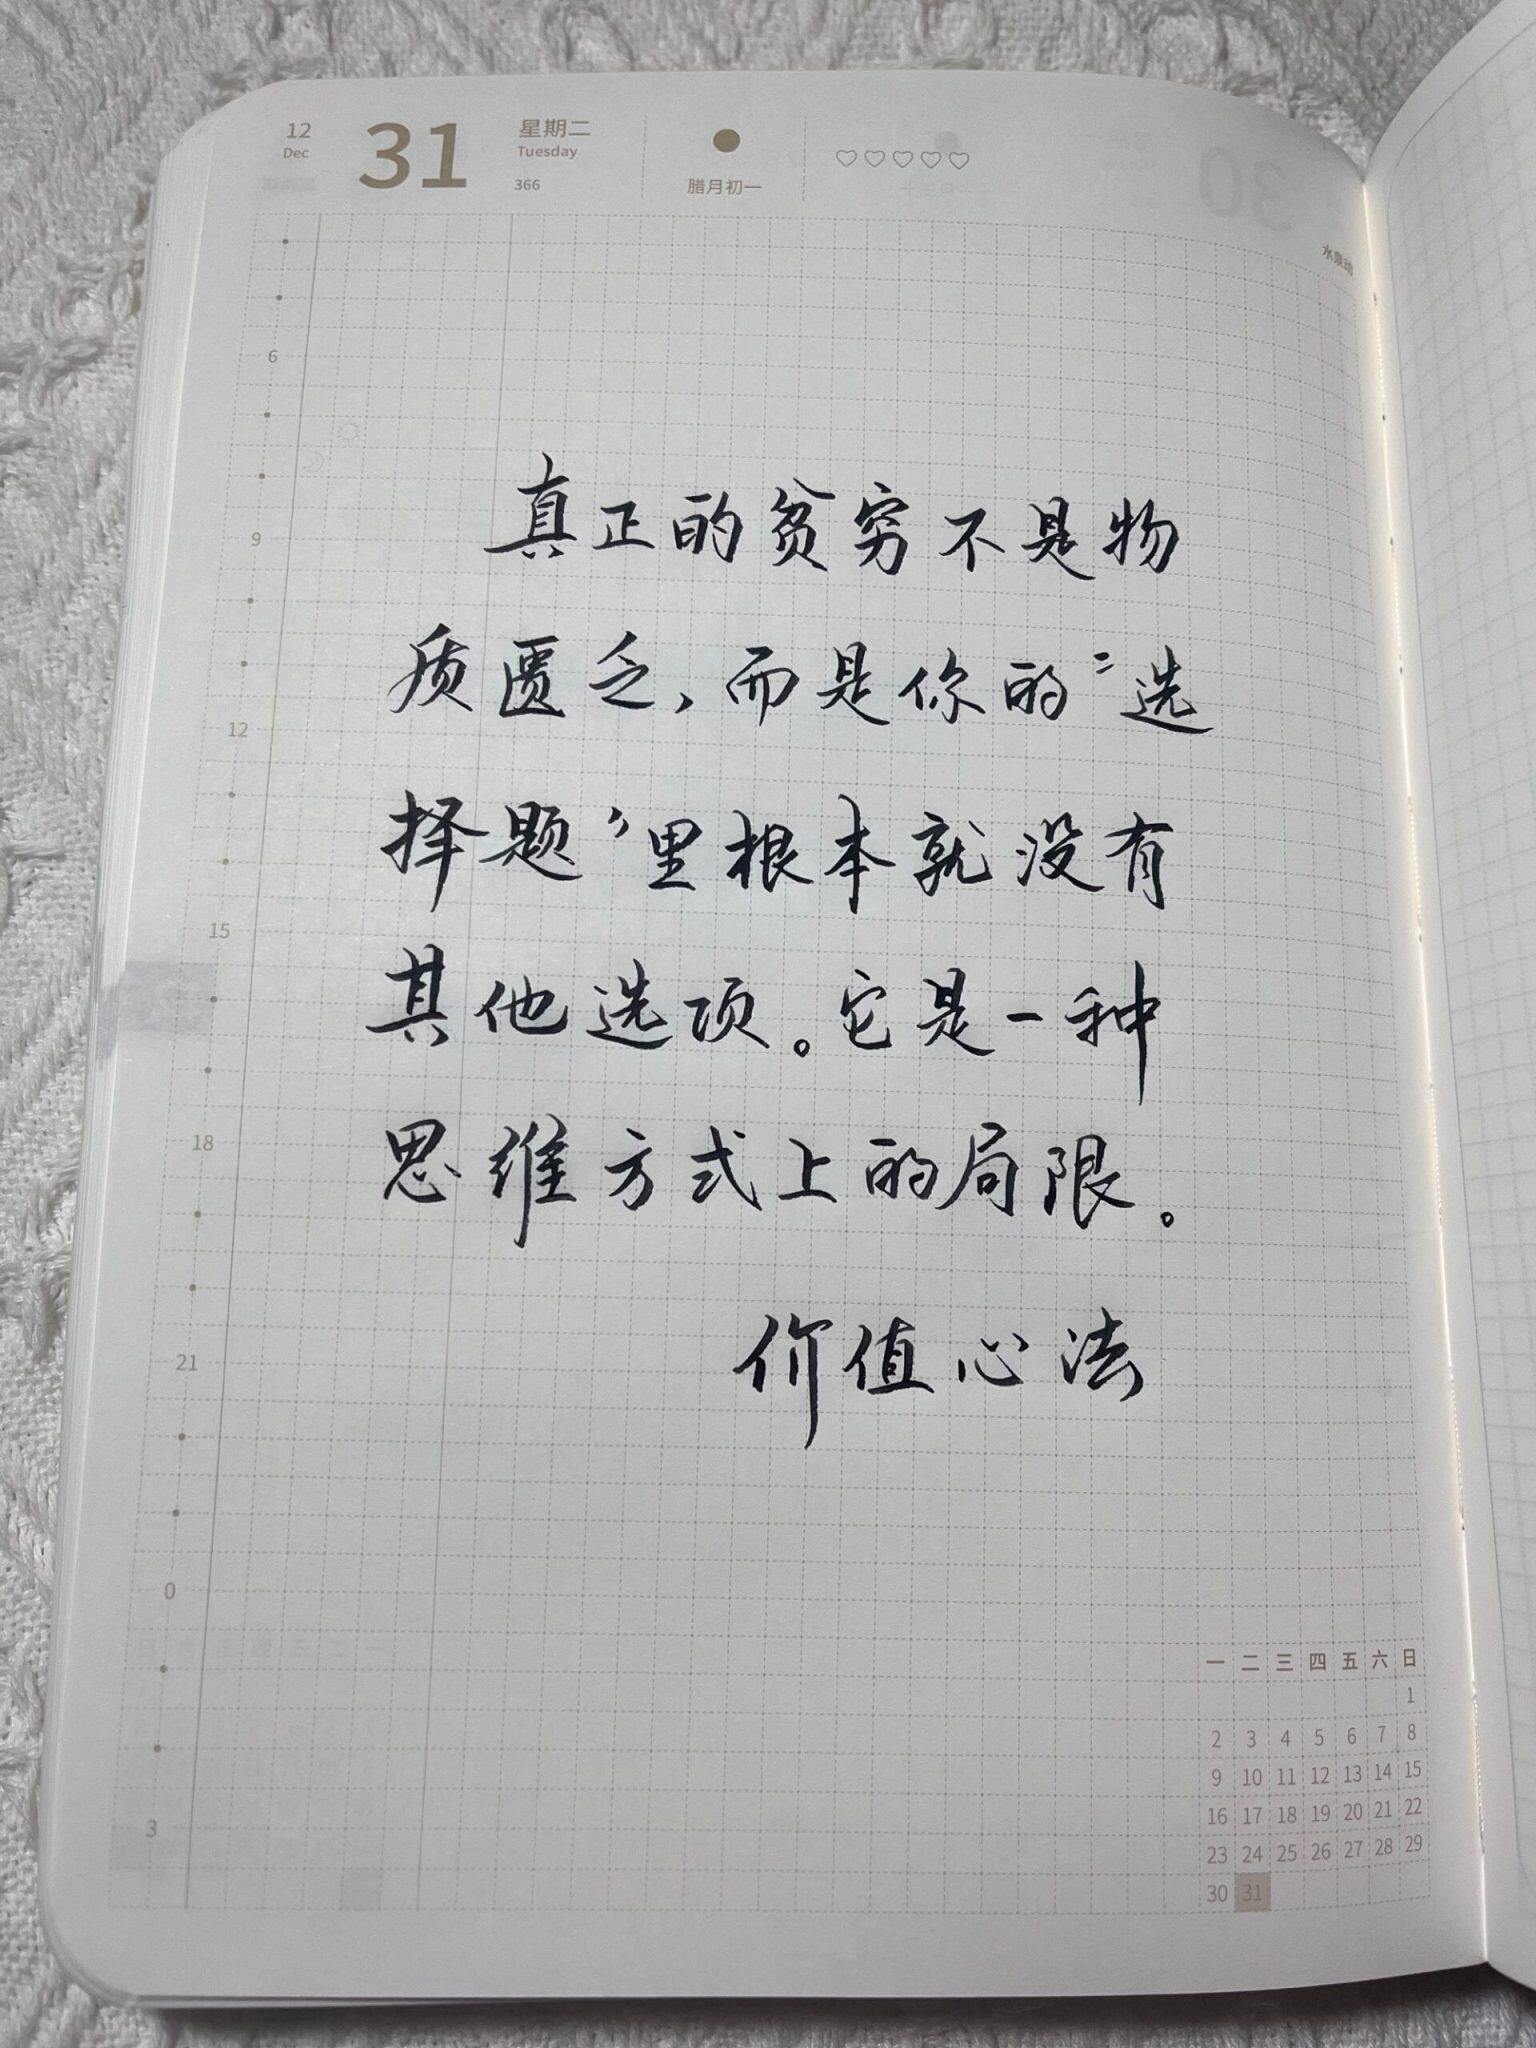 12 31 星期二
Dec Tuesday
366 腊月初一
水泉动
真正的贫穷不是物
质匮乏，而是你的“选
择题”里根本就没有
其他选项。它是一种
思维方式上的局限。
价值心法
6
9
12
15
18
21
0
3
一 二 三 四 五 六 日
1
2 3 4 5 6 7 8
9 10 11 12 13 14 15
16 17 18 19 20 21 22
23 24 25 26 27 28 29
30 31